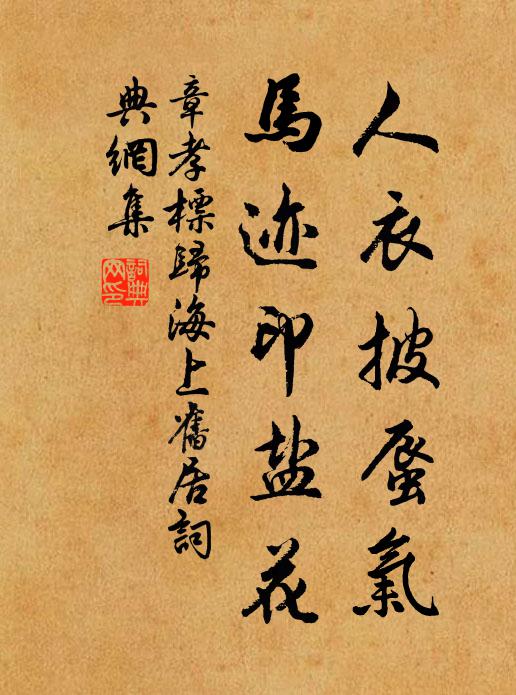 人衣披蜃氣
馬迹印盐花
章孝標歸海上舊居詞
典網集
詞典
网印